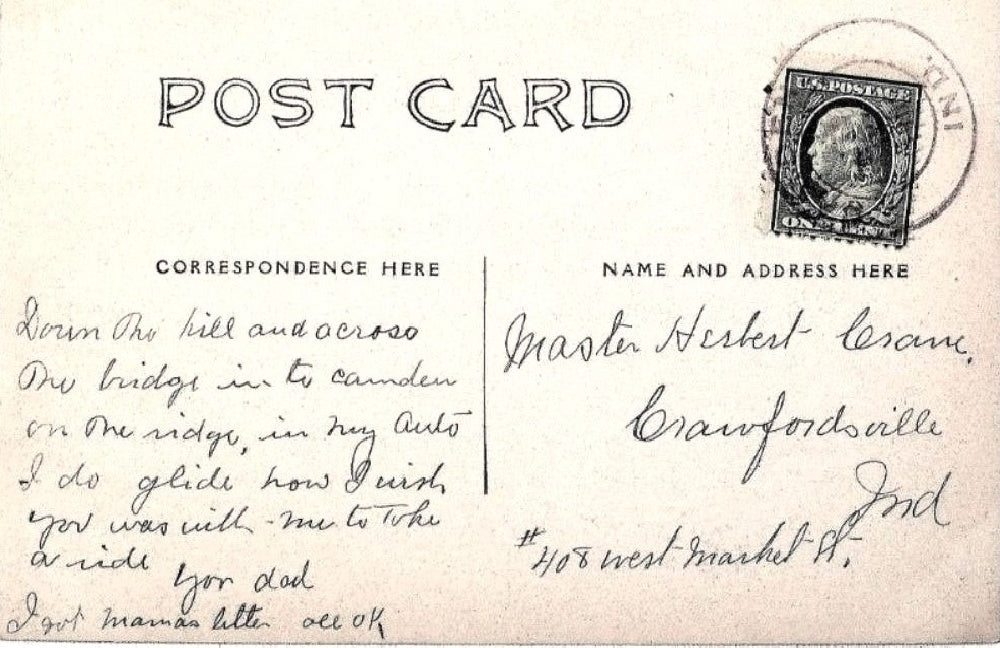 POST CARD
IND.
U.S. POSTAGE
ONE CENT
CORRESPONDENCE HERE
NAME AND ADDRESS HERE
Down the hill and across
the bridge in to camden
on the ridge, in my Auto
I do glide how I wish
you was with me to take
a ride
your dad
I got mamas letter all OK
Master Herbert Crane,
Crawfordsville
Ind
# 408 west Market St.